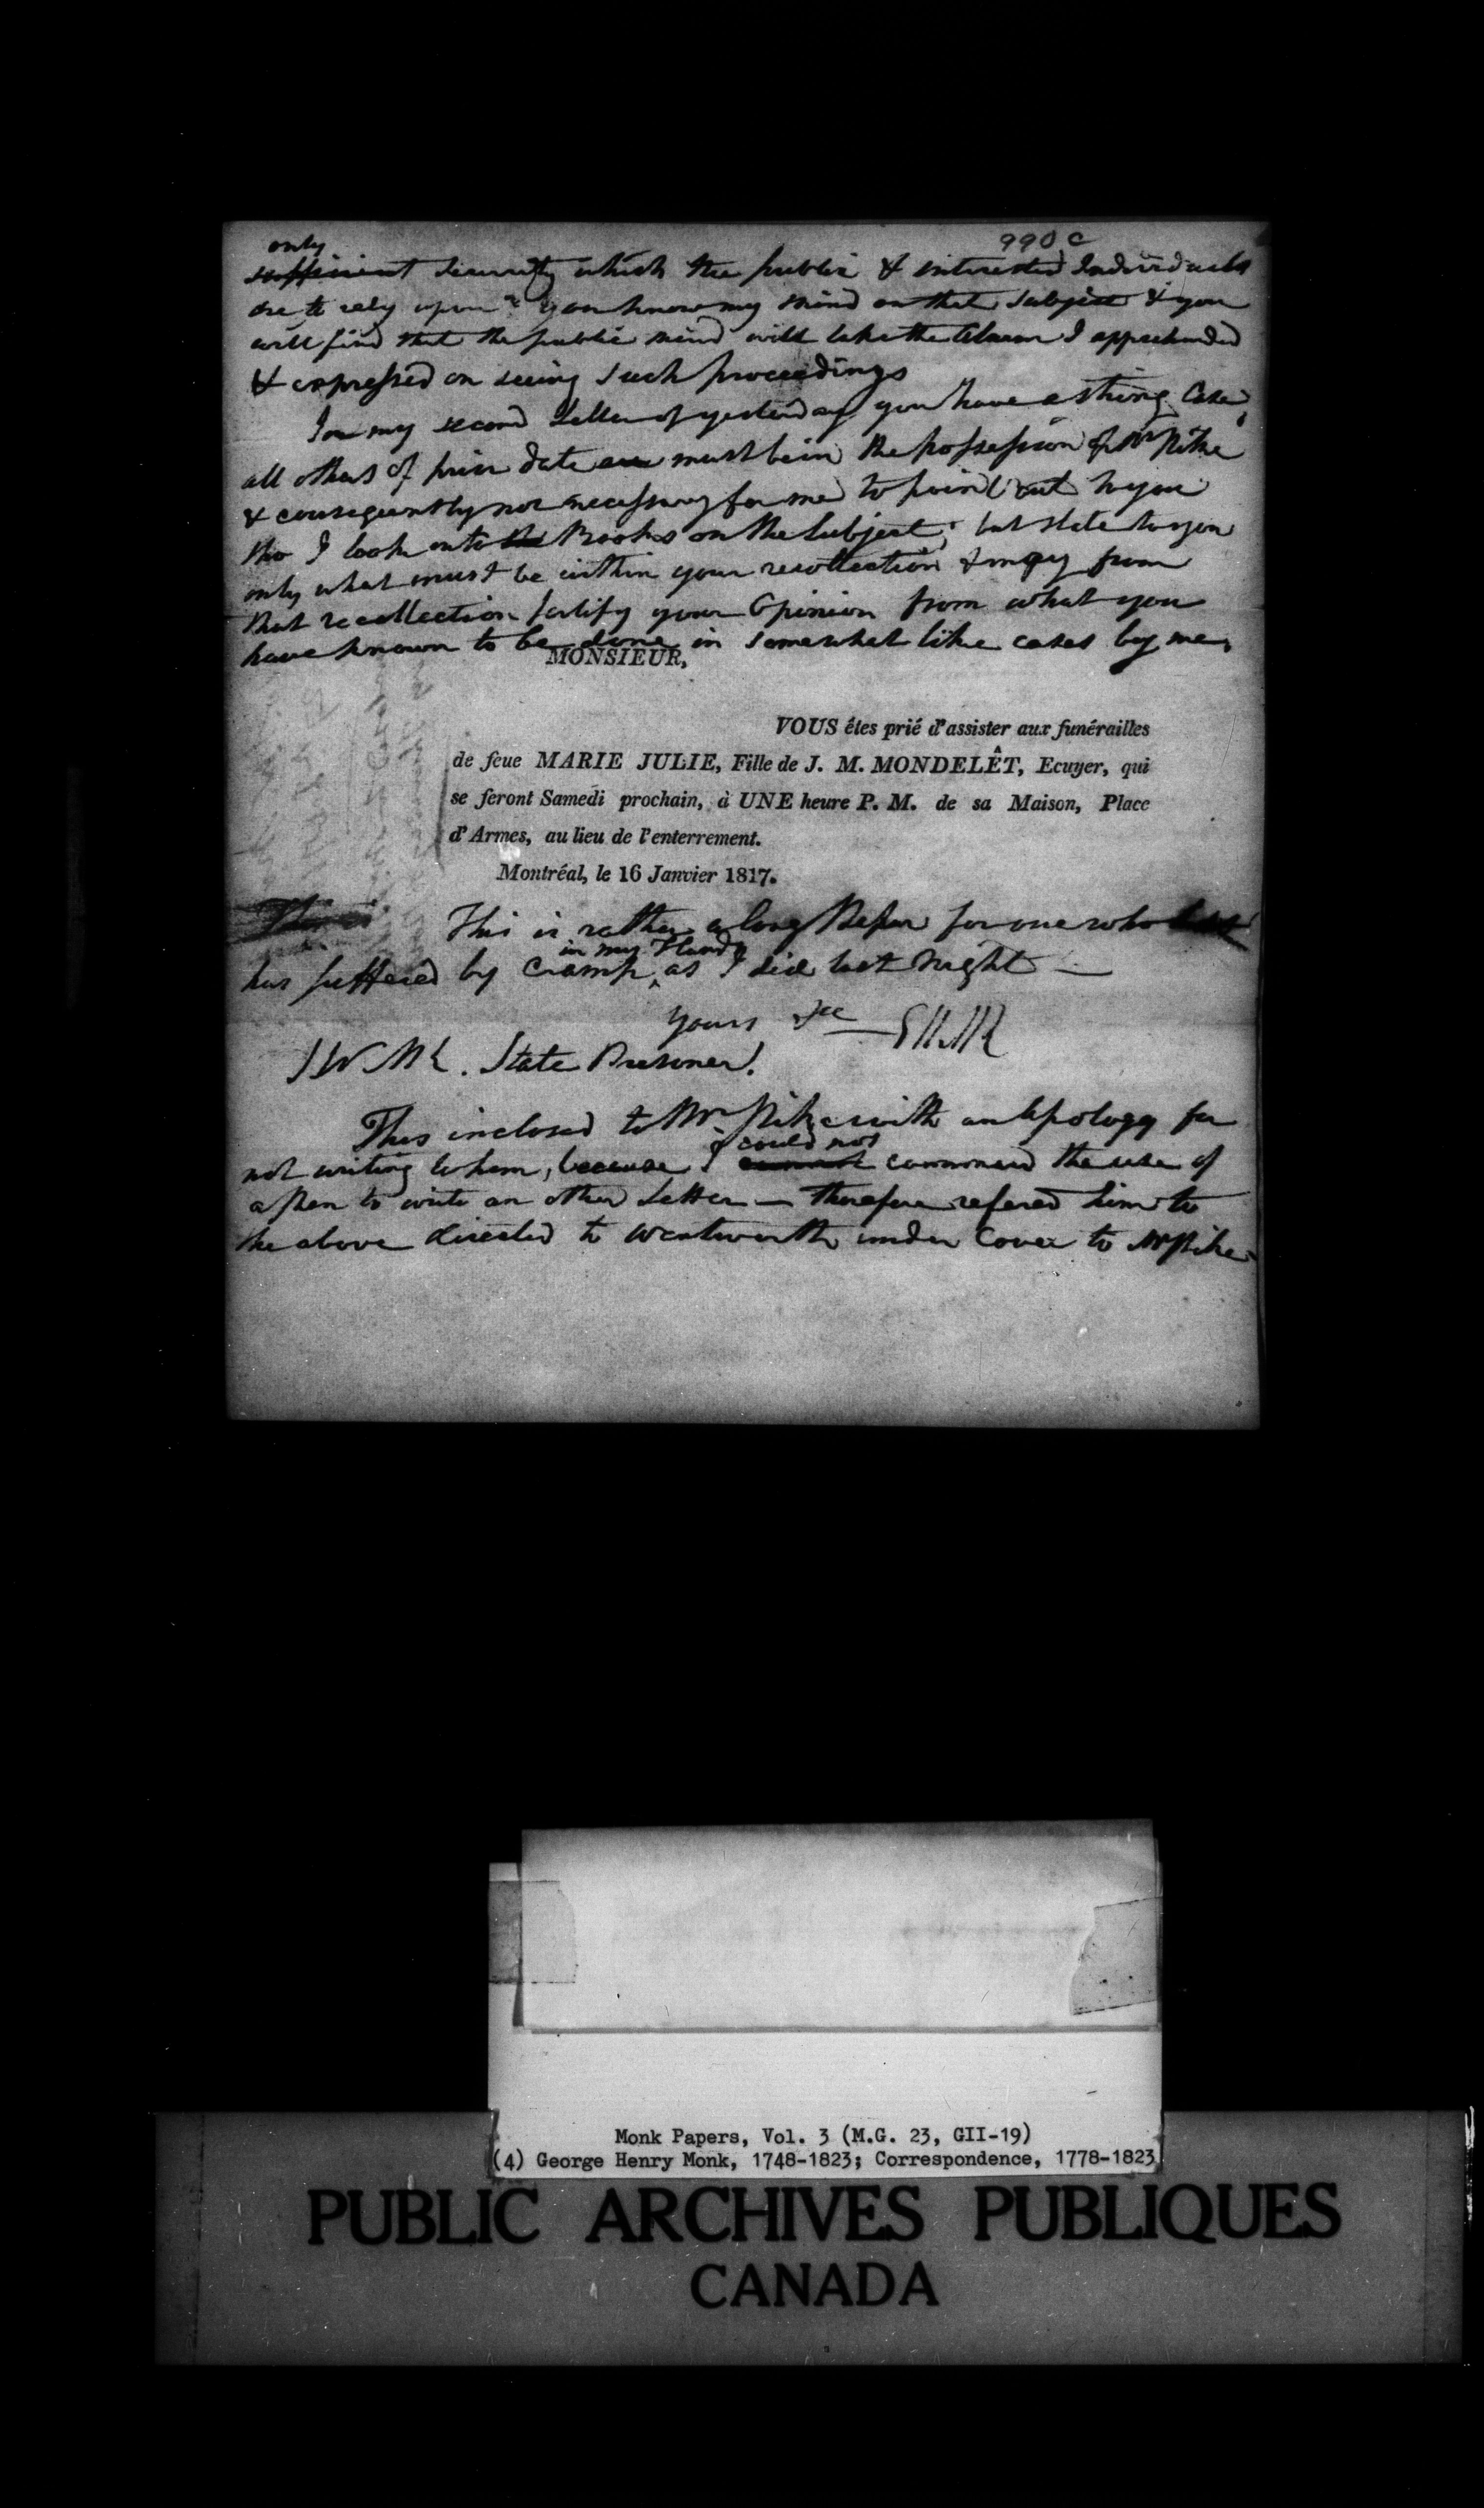 990 c
only
sufficient security which the public & interested Individuals
are to rely upon you know my mind on that subject & you
will find that the public mind will take the Alarm I apprehended
& expressed on seeing such proceedings
In my second Letter of yesterday you have a strong Case,
all others of prior date must be in the possession of Mr Pike
& consequently not necessary for me to point out to you
tho I look into the Books on the Subject, but state to you
only what must be within your recollection & may from
that recollection fortify your Opinion from what you
have known to be done in somewhat like cases by me,
MONSIEUR,
VOUS êtes prié d'assister aux funérailles
de feue MARIE JULIE, Fille de J. M. MONDELÊT, Ecuyer, qui
se feront Samedi prochain, à UNE heure P. M. de sa Maison, Place
d'Armes, au lieu de l'enterrement.
Montréal, le 16 Janvier 1817.
This is rather a long for one who
in my Hand
has suffered by Cramp, as I did last Night —
Yours &c — GHM
JWM. State Prisoner!
This inclosed to Mr Pike with an Apology for
could not
not writing to him, because I cannot command the use of
a Pen to write an other Letter — therefore refered him to
the above directed to Wentworth under Cover to Mr Pike
Monk Papers, Vol. 3 (M.G. 23, GII-19)
(4) George Henry Monk, 1748-1823; Correspondence, 1778-1823
PUBLIC ARCHIVES PUBLIQUES
CANADA